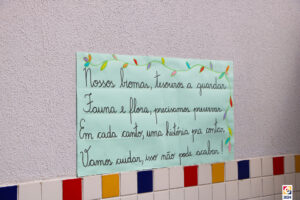 Nossos biomas, tesouros a guardar
Fauna e flora, precisamos preservar
Em cada canto, uma história pra contar,
Vamos cuidar, isso não pode acabar!